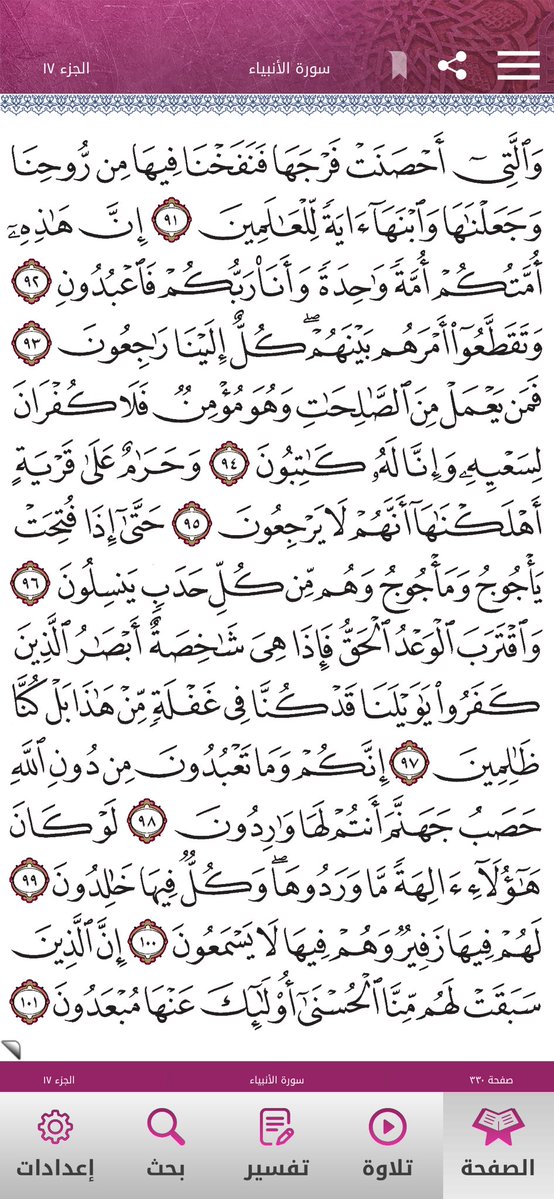 سورة الأنبياء
الجزء ١٧
وَٱلَّتِىٓ أَحۡصَنَتۡ فَرۡجَهَا فَنَفَخۡنَا فِيهَا مِن رُّوحِنَا
وَجَعَلۡنَٰهَا وَٱبۡنَهَآ ءَايَةٗ لِّلۡعَٰلَمِينَ ٩١ إِنَّ هَٰذِهِۦٓ
أُمَّتُكُمۡ أُمَّةٗ وَٰحِدَةٗ وَأَنَا۠ رَبُّكُمۡ فَٱعۡبُدُونِ ٩٢
وَتَقَطَّعُوٓاْ أَمۡرَهُم بَيۡنَهُمۡۖ كُلٌّ إِلَيۡنَا رَٰجِعُونَ ٩٣
فَمَن يَعۡمَلۡ مِنَ ٱلصَّٰلِحَٰتِ وَهُوَ مُؤۡمِنٞ فَلَا كُفۡرَانَ
لِسَعۡيِهِۦ وَإِنَّا لَهُۥ كَٰتِبُونَ ٩٤ وَحَرَٰمٌ عَلَىٰ قَرۡيَةٍ
أَهۡلَكۡنَٰهَآ أَنَّهُمۡ لَا يَرۡجِعُونَ ٩٥ حَتَّىٰٓ إِذَا فُتِحَتۡ
يَأۡجُوجُ وَمَأۡجُوجُ وَهُم مِّن كُلِّ حَدَبٖ يَنسِلُونَ ٩٦
وَٱقۡتَرَبَ ٱلۡوَعۡدُ ٱلۡحَقُّ فَإِذَا هِىَ شَٰخِصَةٌ أَبۡصَٰرُ ٱلَّذِينَ
كَفَرُواْ يَٰوَيۡلَنَا قَدۡ كُنَّا فِى غَفۡلَةٖ مِّنۡ هَٰذَا بَلۡ كُنَّا
ظَٰلِمِينَ ٩٧ إِنَّكُمۡ وَمَا تَعۡبُدُونَ مِن دُونِ ٱللَّهِ
حَصَبُ جَهَنَّمَ أَنتُمۡ لَهَا وَٰرِدُونَ ٩٨ لَوۡ كَانَ
هَٰٓؤُلَآءِ ءَالِهَةٗ مَّا وَرَدُوهَاۖ وَكُلّٞ فِيهَا خَٰلِدُونَ ٩٩
لَهُمۡ فِيهَا زَفِيرٞ وَهُمۡ فِيهَا لَا يَسۡمَعُونَ ١٠٠ إِنَّ ٱلَّذِينَ
سَبَقَتۡ لَهُم مِّنَّا ٱلۡحُسۡنَىٰٓ أُوْلَٰٓئِكَ عَنۡهَا مُبۡعَدُونَ ١٠١
صفحة ٣٣٠
سورة الأنبياء
الجزء ١٧
الصفحة
تلاوة
تفسير
بحث
إعدادات